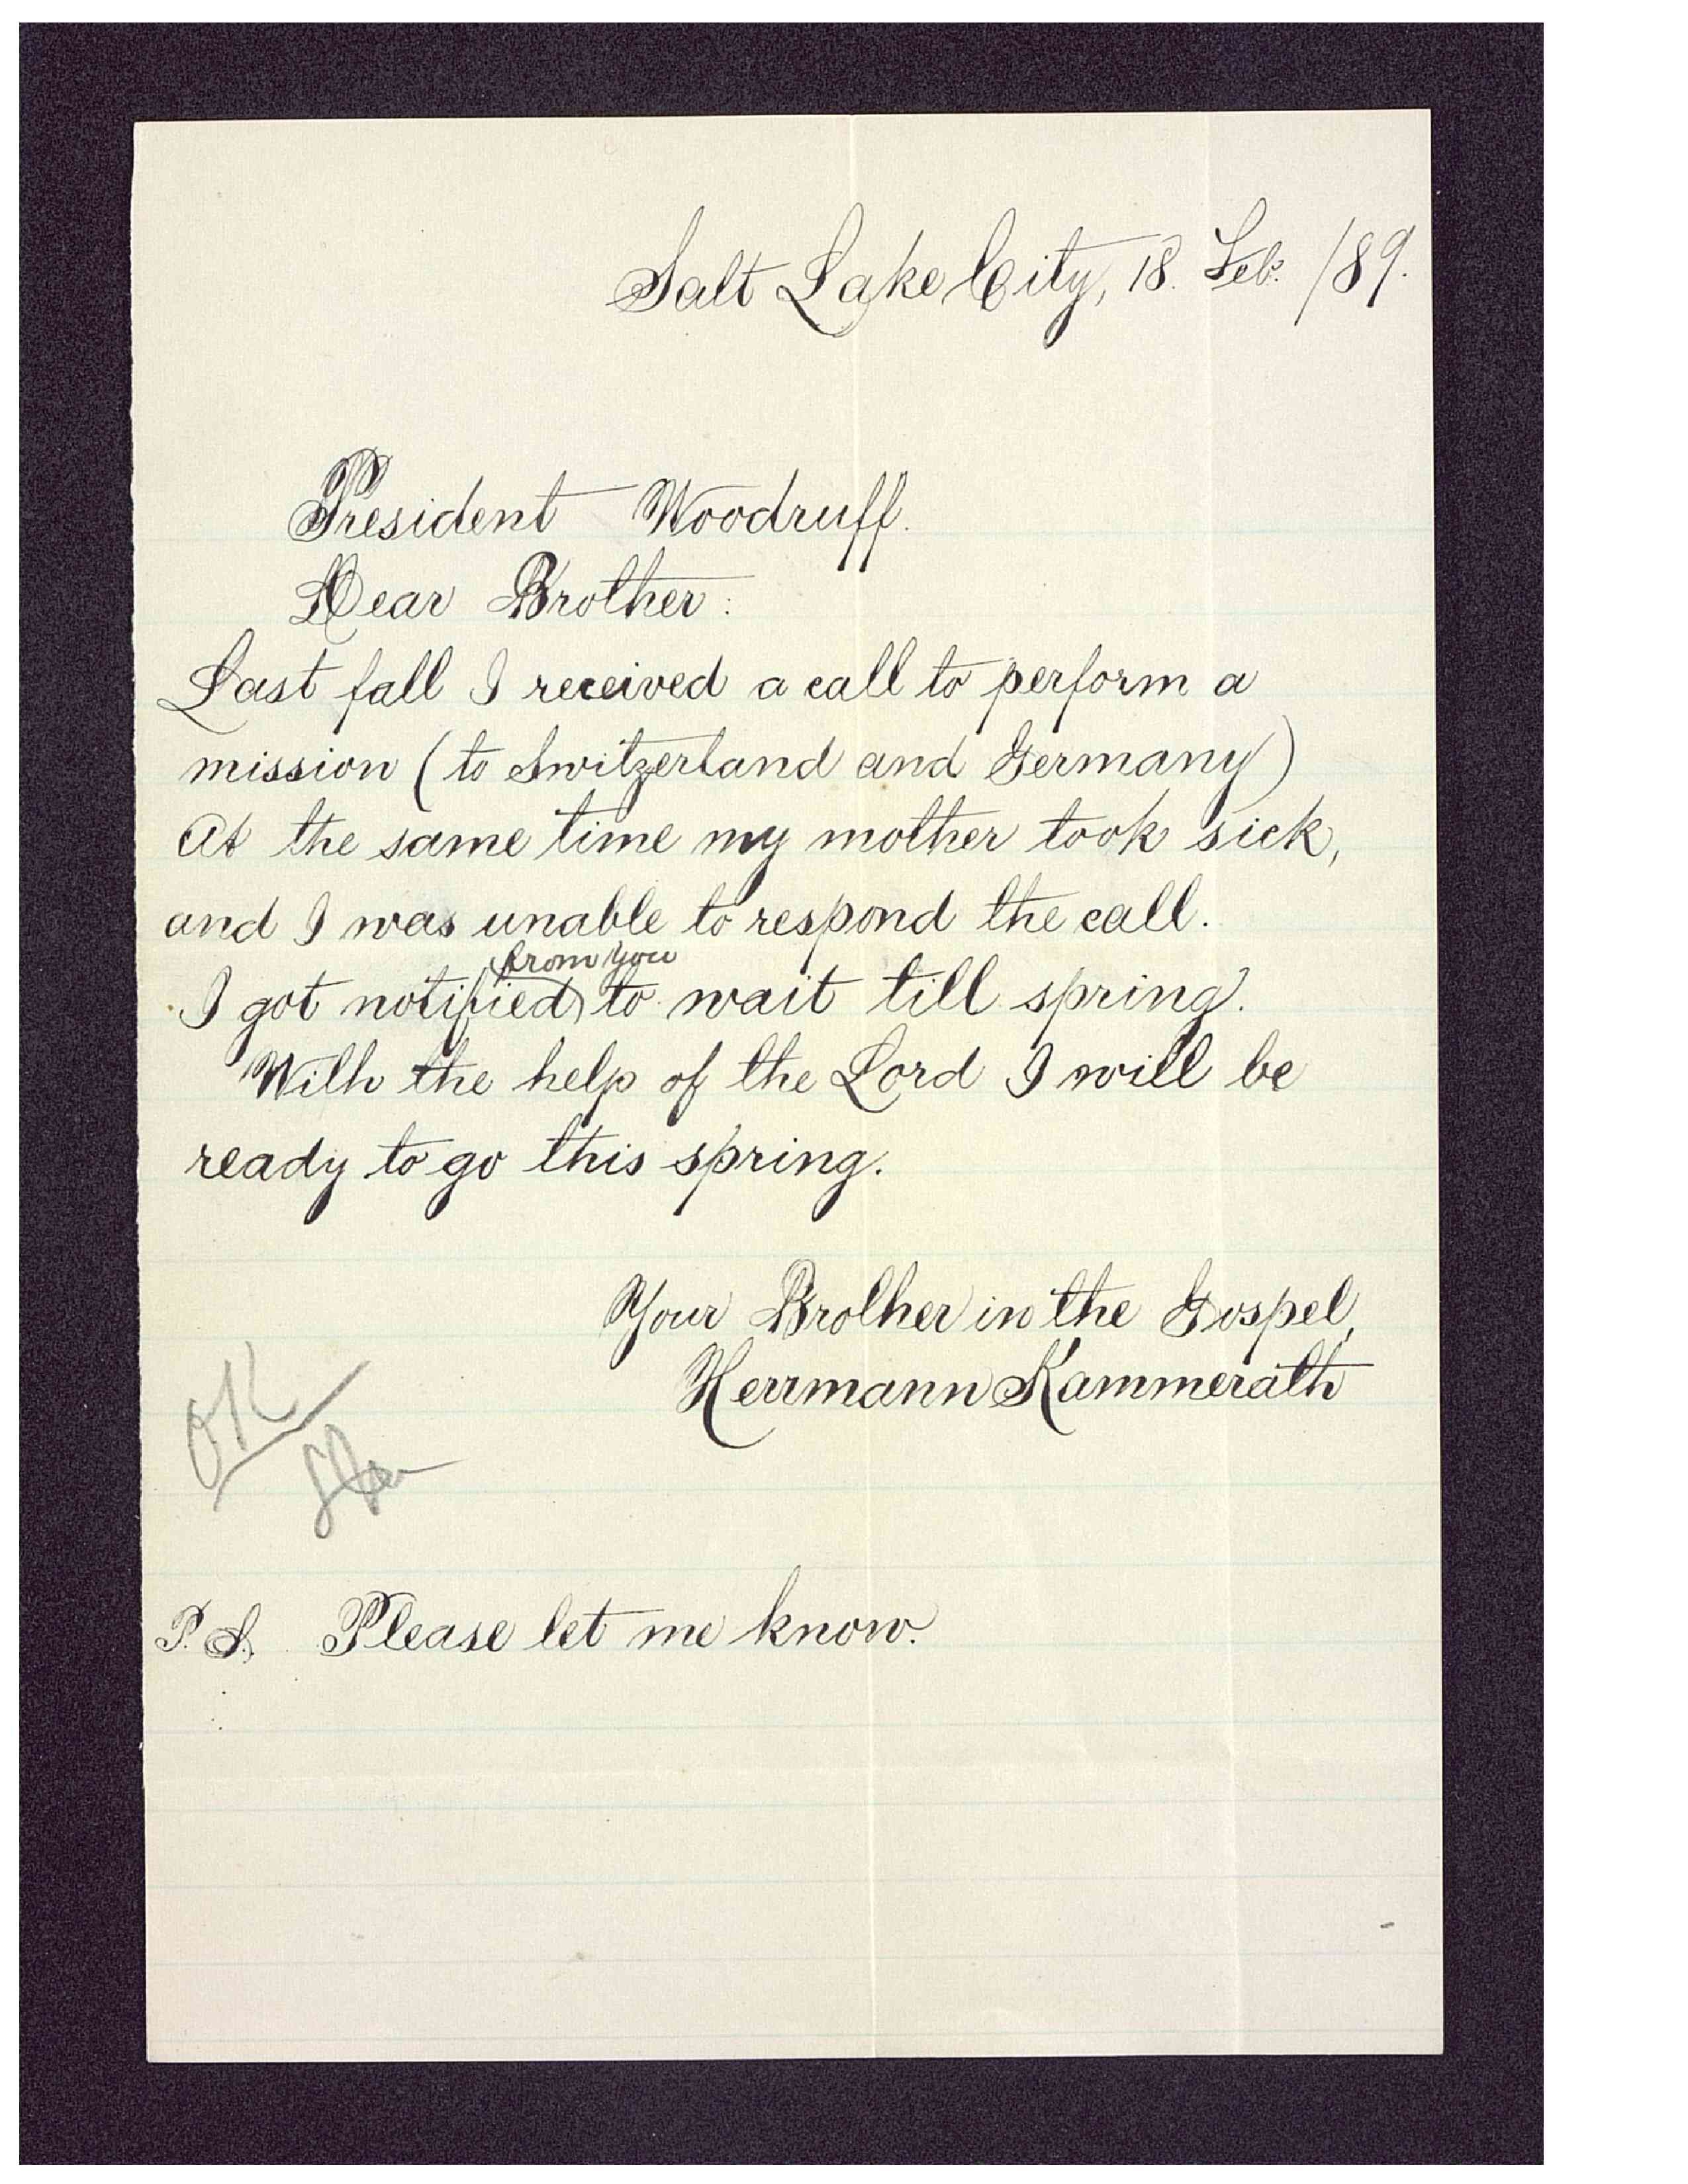 Salt Lake City, 18. Feb. /89.
President Woodruff.
Dear Brother:
Last fall I received a call to perform a
mission (to Switzerland and Germany)
At the same time my mother took sick,
and I was unable to respond the call.
from you
I got notified to wait till spring.
With the help of the Lord I will be
ready to go this spring.
Your Brother in the Gospel,
Herrmann Kammerath
OK
P.S. Please let me know.